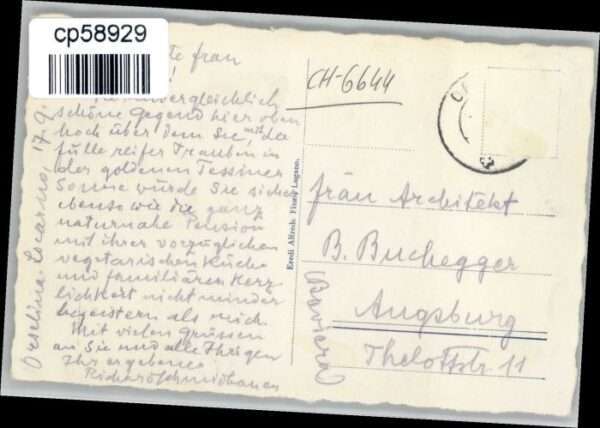 cp58929
frau
unvergleichlich
schöne Gegend hier oben
hoch über dem See, mit der
Fülle reifer Trauben in
der goldenen Tessiner
Sonne würde Sie sicher
ebenso wie die ganz
naturnahe Pension
mit ihrer vorzüglichen
vegetarischen Küche
und familiären Herz
lichkeit nicht minder
begeistern als mich.
Mit vielen Grüssen
an Sie und alle Ihrigen
Ihr ergebener
Orselina-Locarno, 17.9.
Eredi Alfredo Finzi, Lugano.
CH-6644
Frau Architekt
B. Buchegger
Augsburg
Thelottstr. 11
(Baviera)